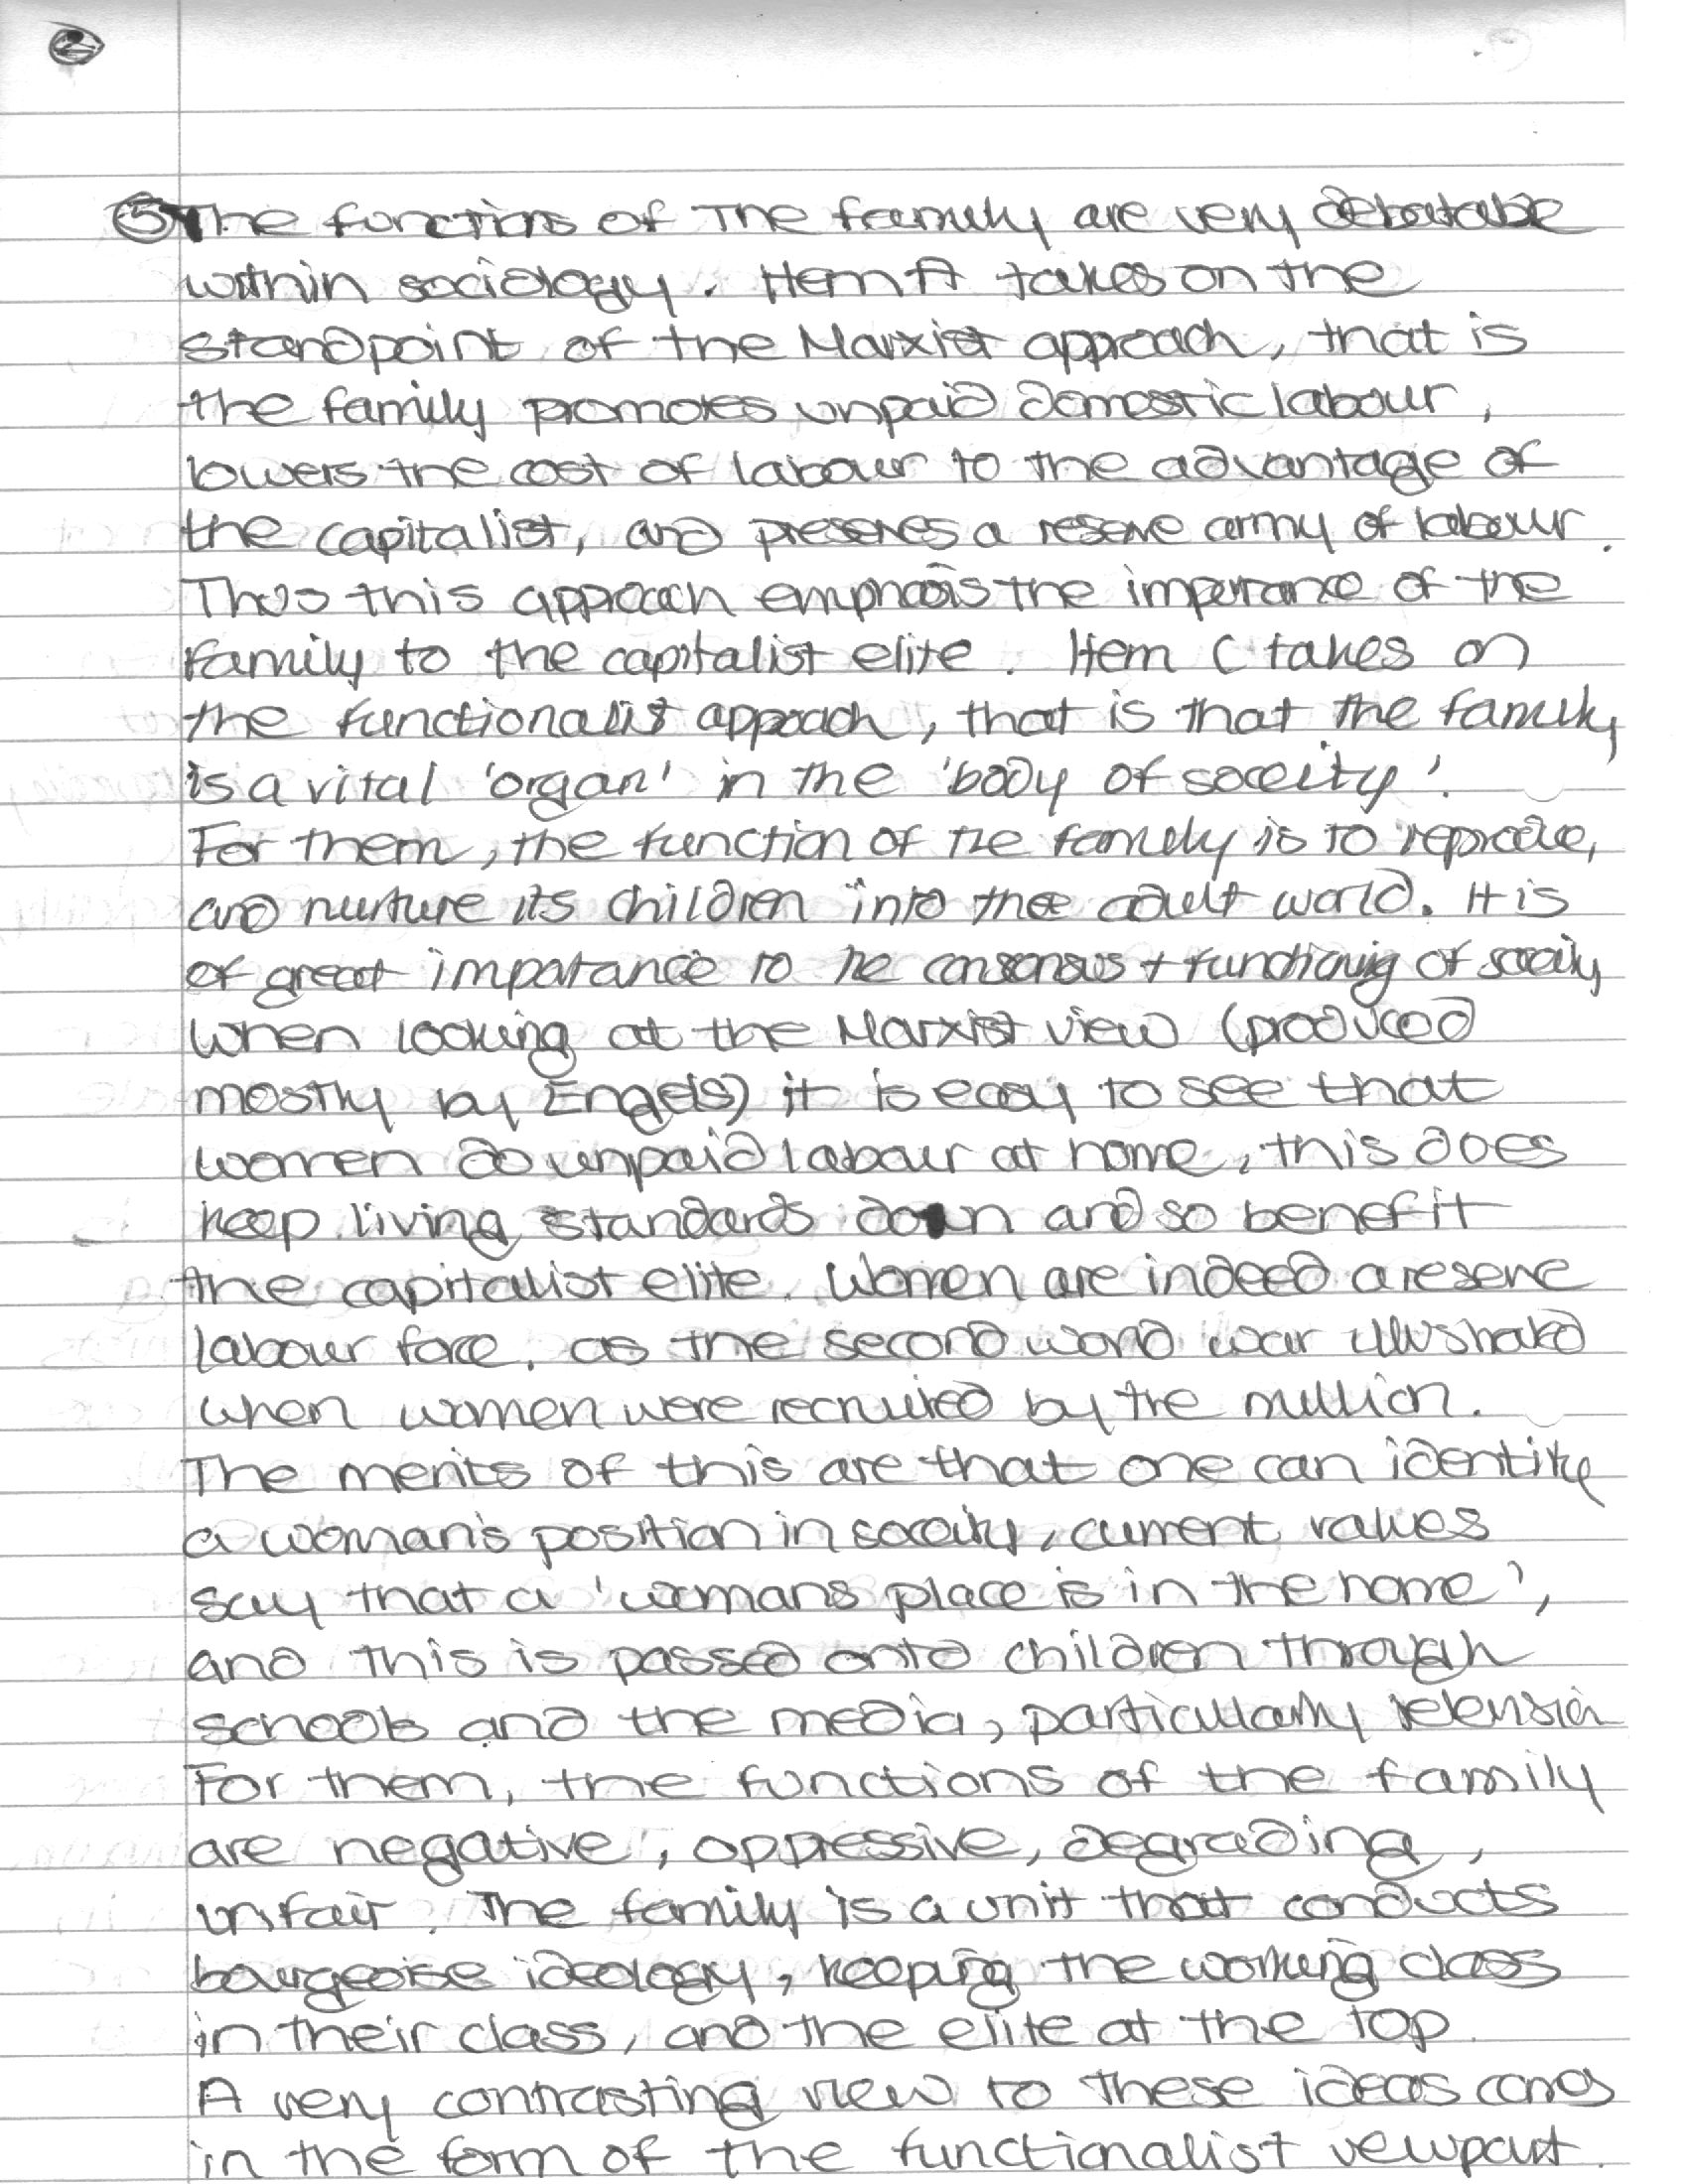 2
5 The functions of the family are very debatable
within sociology. Item A takes on the
standpoint of the Marxist approach, that is
the family promotes unpaid domestic labour,
lowers the cost of labour to the advantage of
the capitalist, and preserves a reserve army of labour.
Thus this approach emphasis the importance of the
family to the capitalist elite. Item C takes on
the functionalist approach, that is that the family
is a vital 'organ' in the 'body of soceity'.
For them, the function of the family is to reproduce,
and nurture its children into the adult world. It is
of great importance to the consensus + functioning of soceity
When looking at the Marxist view (produced
mostly by Engels) it is easy to see that
women do unpaid labour at home, this does
keep living standards down and so benefit
the capitalist elite. Women are indeed a reserve
labour force, as the second world war illustrated
when women were recruited by the million.
The merits of this are that one can identify
a woman's position in soceity, current values
say that a 'womans place is in the home',
and this is passed onto children through
schools and the media, particularly television
For them, the functions of the family
are negative, oppressive, degrading,
unfair. The family is a unit that conducts
bourgeoise ideology, keeping the working class
in their class, and the elite at the top.
A very contrasting view to these ideas comes
in the form of the functionalist viewpoint.